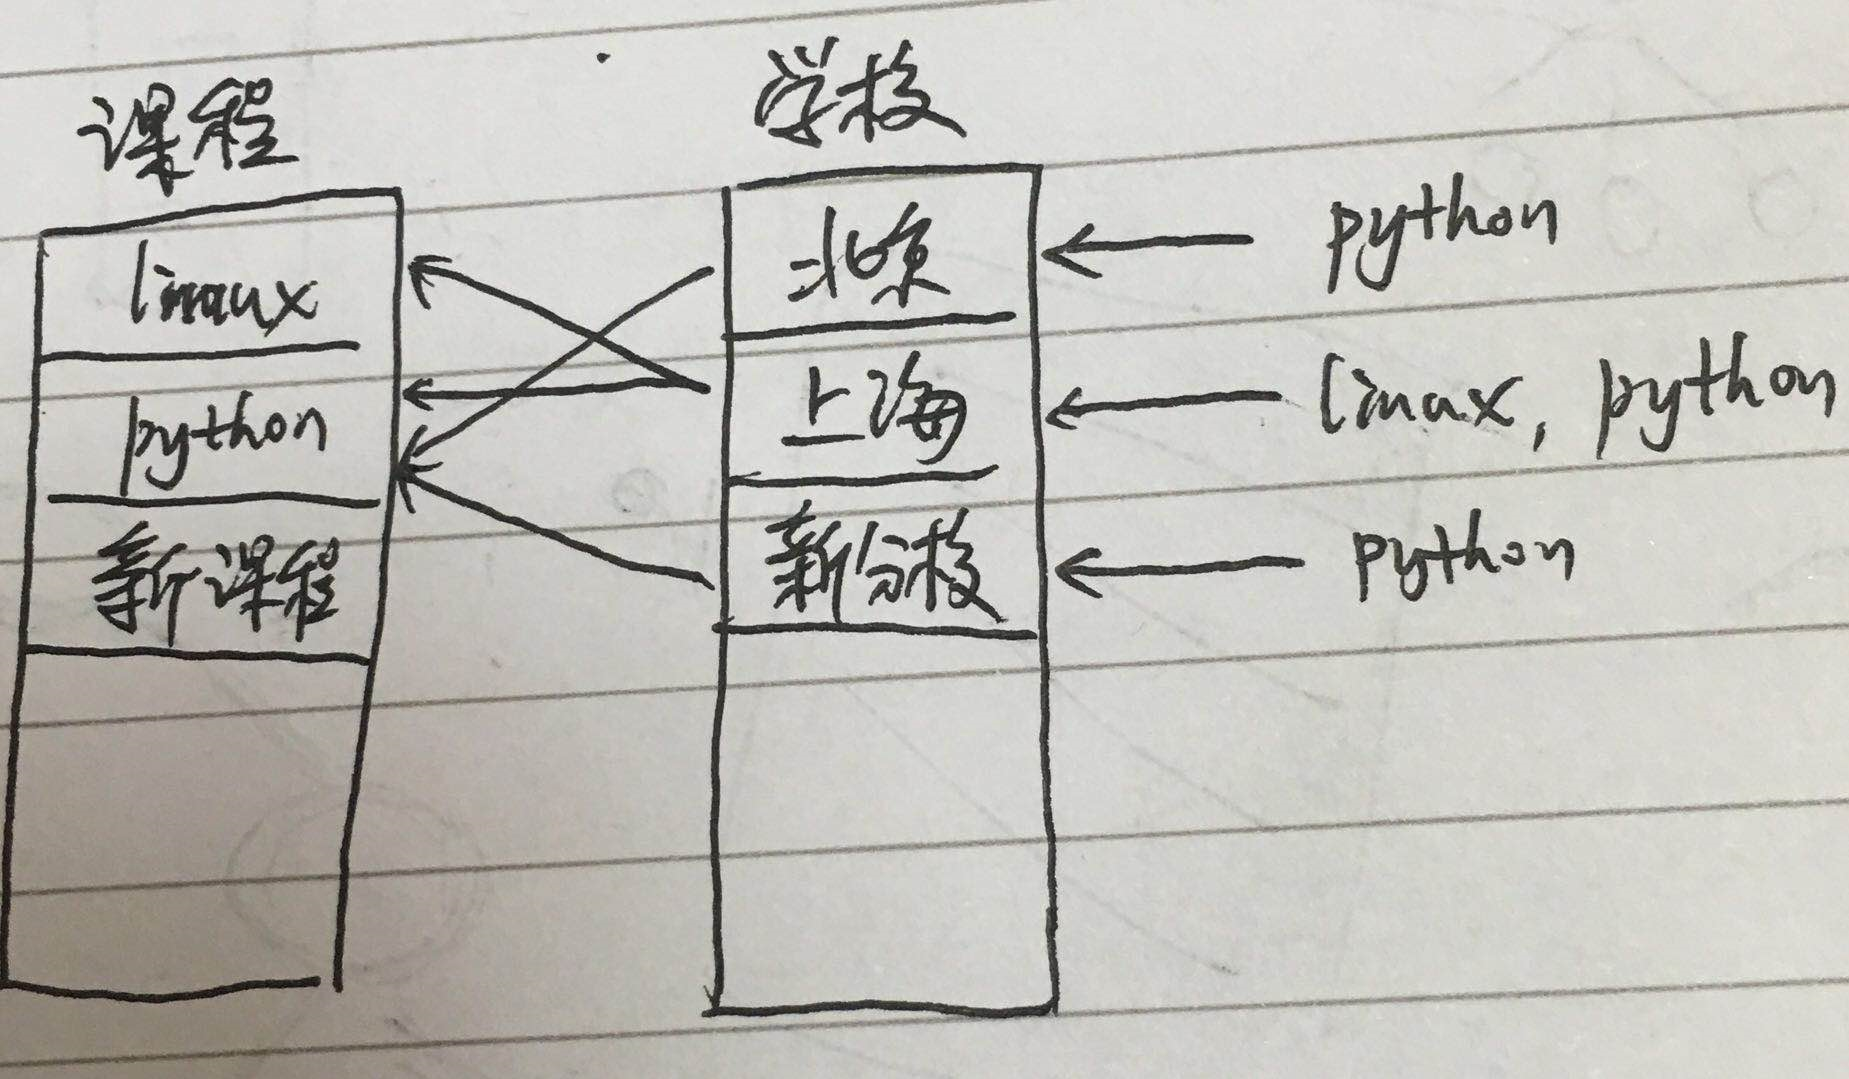 课程
学校
linux
python
新课程
北京
上海
新分校
python
linux, python
python